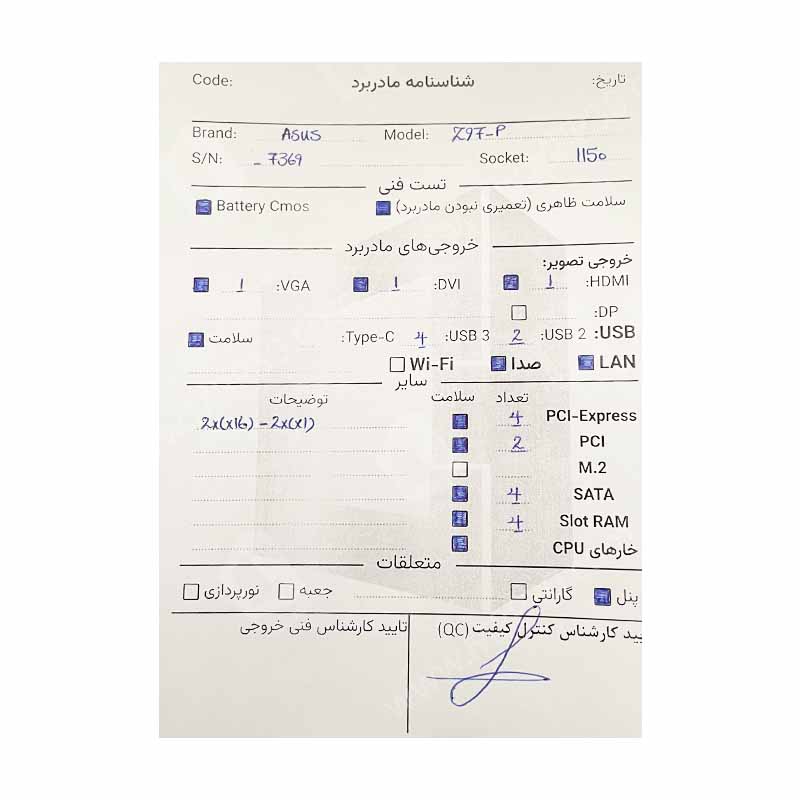 Code: شناسنامه مادربرد تاریخ:
Brand: ASUS Model: Z97-P
S/N: - 7369 Socket: 1150
تست فنی
سلامت ظاهری (تعمیری نبودن مادربرد) Battery Cmos
خروجی‌های مادربرد
خروجی تصویر:
HDMI: 1 DVI: 1 VGA: 1
DP:
USB: USB 2: 2 USB 3: 4 Type-C: سلامت
LAN صدا Wi-Fi
سایر
تعداد سلامت توضیحات
PCI-Express 4 2x(x16) - 2x(x1)
PCI 2
M.2
SATA 4
Slot RAM 4
خارهای CPU
متعلقات
پنل گارانتی جعبه نورپردازی
یید کارشناس کنترل کیفیت (QC) تایید کارشناس فنی خروجی